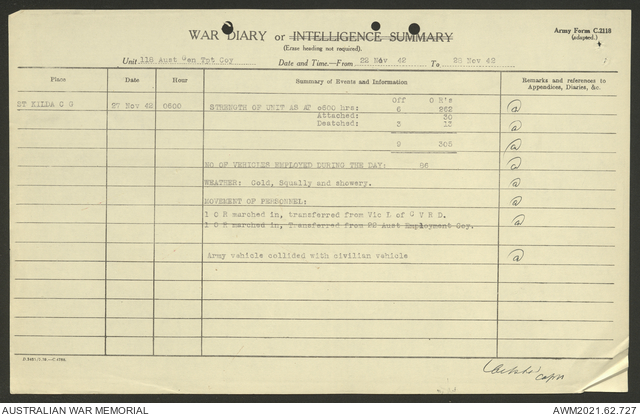 WAR DIARY or INTELLIGENCE SUMMARY
(Erase heading not required).
Army Form C.2118
(adapted.)
Unit 118 Aust Gen Tpt Coy Date and Time.—From 22 Nov 42 To 28 Nov 42
Place Date Hour Summary of Events and Information Remarks and references to Appendices, Diaries, &c.
ST KILDA C G 27 Nov 42 0600 STRENGTH OF UNIT AS AT 0600 hrs: Off O R's
6 262
Attached: 30
Deatched: 3 13
9 305
NO OF VEHICLES EMPLOYED DURING THE DAY: 86
WEATHER: Cold, Squally and showery.
MOVEMENT OF PERSONNEL:
1 O R marched in, transferred from Vic L of C V R D.
1 O R marched in, Transferred from 22 Aust Employment Coy.
Army vehicle collided with civilian vehicle
a
a
a
a
a
a
a
Capt
AUSTRALIAN WAR MEMORIAL
AWM2021.62.727